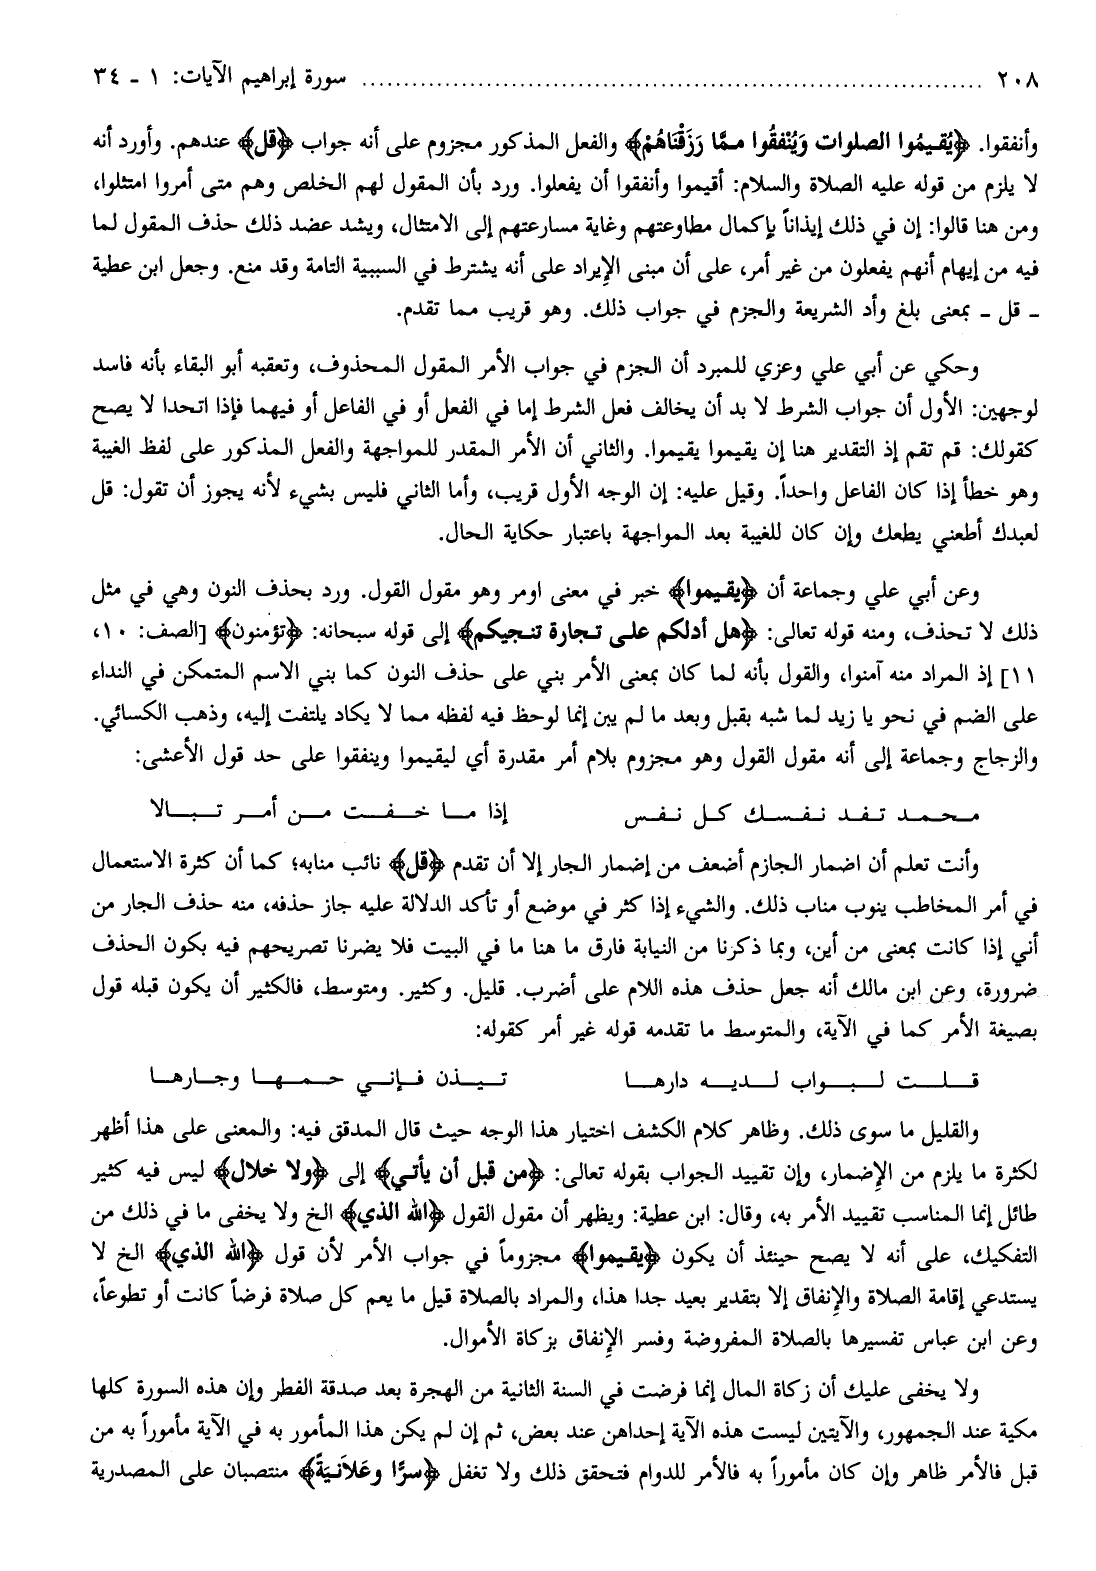 ٢٠٨ ........................................................................................ سورة إبراهيم الآيات: ١ ـ ٣٤
وأنفقوا. ﴿يُقيمُوا الصلوات وَيُنْفقُوا ممَّا رَزَقْنَاهُمْ﴾ والفعل المذكور مجزوم على أنه جواب ﴿قل﴾ عندهم. وأورد أنه
لا يلزم من قوله عليه الصلاة والسلام: أقيموا وأنفقوا أن يفعلوا. ورد بأن المقول لهم الخلص وهم متى أمروا امتثلوا،
ومن هنا قالوا: إن في ذلك إيذاناً بإكمال مطاوعتهم وغاية مسارعتهم إلى الامتثال، ويشد عضد ذلك حذف المقول لما
فيه من إيهام أنهم يفعلون من غير أمر، على أن مبنى الإيراد على أنه يشترط في السببية التامة وقد منع. وجعل ابن عطية
ـ قل ـ بمعنى بلغ وأد الشريعة والجزم في جواب ذلك. وهو قريب مما تقدم.
وحكي عن أبي علي وعزي للمبرد أن الجزم في جواب الأمر المقول المحذوف، وتعقبه أبو البقاء بأنه فاسد
لوجهين: الأول أن جواب الشرط لا بد أن يخالف فعل الشرط إما في الفعل أو في الفاعل أو فيهما فإذا اتحدا لا يصح
كقولك: قم تقم إذ التقدير هنا إن يقيموا يقيموا. والثاني أن الأمر المقدر للمواجهة والفعل المذكور على لفظ الغيبة
وهو خطأ إذا كان الفاعل واحداً. وقيل عليه: إن الوجه الأول قريب، وأما الثاني فليس بشيء لأنه يجوز أن تقول: قل
لعبدك أطعني يطعك وإن كان للغيبة بعد المواجهة باعتبار حكاية الحال.
وعن أبي علي وجماعة أن ﴿يقيموا﴾ خبر في معنى اومر وهو مقول القول. ورد بحذف النون وهي في مثل
ذلك لا تحذف، ومنه قوله تعالى: ﴿هل أدلكم على تجارة تنجيكم﴾ إلى قوله سبحانه: ﴿تؤمنون﴾ [الصف: ١٠،
١١] إذ المراد منه آمنوا، والقول بأنه لما كان بمعنى الأمر بني على حذف النون كما بني الاسم المتمكن في النداء
على الضم في نحو يا زيد لما شبه بقبل وبعد ما لم يبن إنما لوحظ فيه لفظه مما لا يكاد يلتفت إليه، وذهب الكسائي.
والزجاج وجماعة إلى أنه مقول القول وهو مجزوم بلام أمر مقدرة أي ليقيموا وينفقوا على حد قول الأعشى:
محمد تفد نفسك كل نفس إذا ما خفت من أمر تبالا
وأنت تعلم أن اضمار الجازم أضعف من إضمار الجار إلا أن تقدم ﴿قل﴾ نائب منابه؛ كما أن كثرة الاستعمال
في أمر المخاطب ينوب مناب ذلك. والشيء إذا كثر في موضع أو تأكد الدلالة عليه جاز حذفه، منه حذف الجار من
أني إذا كانت بمعنى من أين، وبما ذكرنا من النيابة فارق ما هنا ما في البيت فلا يضرنا تصريحهم فيه بكون الحذف
ضرورة، وعن ابن مالك أنه جعل حذف هذه اللام على أضرب. قليل. وكثير. ومتوسط، فالكثير أن يكون قبله قول
بصيغة الأمر كما في الآية، والمتوسط ما تقدمه قوله غير أمر كقوله:
قلت لبواب لديه دارها تيذن فإني حمها وجارها
والقليل ما سوى ذلك. وظاهر كلام الكشف اختيار هذا الوجه حيث قال المدقق فيه: والمعنى على هذا أظهر
لكثرة ما يلزم من الإضمار، وإن تقييد الجواب بقوله تعالى: ﴿من قبل أن يأتي﴾ إلى ﴿ولا خلال﴾ ليس فيه كثير
طائل إنما المناسب تقييد الأمر به، وقال: ابن عطية: ويظهر أن مقول القول ﴿الله الذي﴾ الخ ولا يخفى ما في ذلك من
التفكيك، على أنه لا يصح حينئذ أن يكون ﴿يقيموا﴾ مجزوماً في جواب الأمر لأن قول ﴿الله الذي﴾ الخ لا
يستدعي إقامة الصلاة والإنفاق إلا بتقدير بعيد جدا هذا، والمراد بالصلاة قيل ما يعم كل صلاة فرضاً كانت أو تطوعاً،
وعن ابن عباس تفسيرها بالصلاة المفروضة وفسر الإنفاق بزكاة الأموال.
ولا يخفى عليك أن زكاة المال إنما فرضت في السنة الثانية من الهجرة بعد صدقة الفطر وإن هذه السورة كلها
مكية عند الجمهور، والآيتين ليست هذه الآية إحداهن عند بعض، ثم إن لم يكن هذا المأمور به في الآية مأموراً به من
قبل فالأمر ظاهر وإن كان مأموراً به فالأمر للدوام فتحقق ذلك ولا تغفل ﴿سرًّا وعَلاَنيَةً﴾ منتصبان على المصدرية